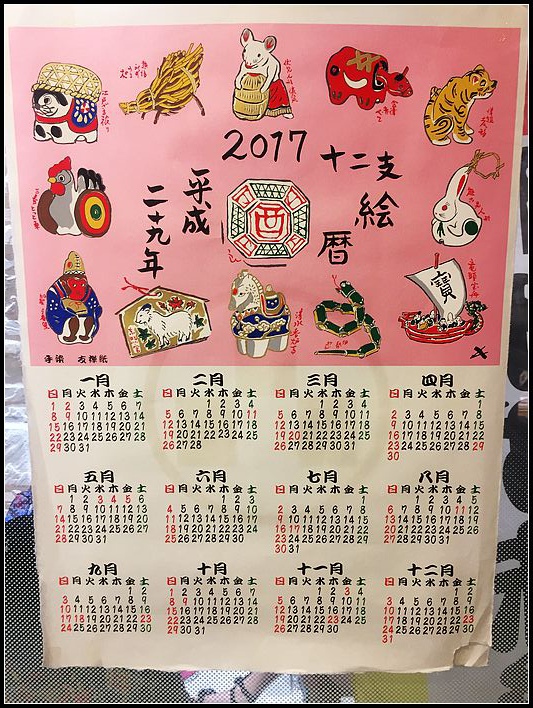 2017
十二支
絵
暦
平成
二十九年
酉
寶
手染 友禅紙
一月
日月火水木金土
1 2 3 4 5 6 7
8 9 10 11 12 13 14
15 16 17 18 19 20 21
22 23 24 25 26 27 28
29 30 31
二月
日月火水木金土
1 2 3 4
5 6 7 8 9 10 11
12 13 14 15 16 17 18
19 20 21 22 23 24 25
26 27 28
三月
日月火水木金土
1 2 3 4
5 6 7 8 9 10 11
12 13 14 15 16 17 18
19 20 21 22 23 24 25
26 27 28 29 30 31
四月
日月火水木金土
1
2 3 4 5 6 7 8
9 10 11 12 13 14 15
16 17 18 19 20 21 22
23 24 25 26 27 28 29
30
五月
日月火水木金土
1 2 3 4 5 6
7 8 9 10 11 12 13
14 15 16 17 18 19 20
21 22 23 24 25 26 27
28 29 30 31
六月
日月火水木金土
1 2 3
4 5 6 7 8 9 10
11 12 13 14 15 16 17
18 19 20 21 22 23 24
25 26 27 28 29 30
七月
日月火水木金土
1
2 3 4 5 6 7 8
9 10 11 12 13 14 15
16 17 18 19 20 21 22
23 24 25 26 27 28 29
30 31
八月
日月火水木金土
1 2 3 4 5
6 7 8 9 10 11 12
13 14 15 16 17 18 19
20 21 22 23 24 25 26
27 28 29 30 31
九月
日月火水木金土
1 2
3 4 5 6 7 8 9
10 11 12 13 14 15 16
17 18 19 20 21 22 23
24 25 26 27 28 29 30
十月
日月火水木金土
1 2 3 4 5 6 7
8 9 10 11 12 13 14
15 16 17 18 19 20 21
22 23 24 25 26 27 28
29 30 31
十一月
日月火水木金土
1 2 3 4
5 6 7 8 9 10 11
12 13 14 15 16 17 18
19 20 21 22 23 24 25
26 27 28 29 30
十二月
日月火水木金土
1 2
3 4 5 6 7 8 9
10 11 12 13 14 15 16
17 18 19 20 21 22 23
24 25 26 27 28 29 30
31